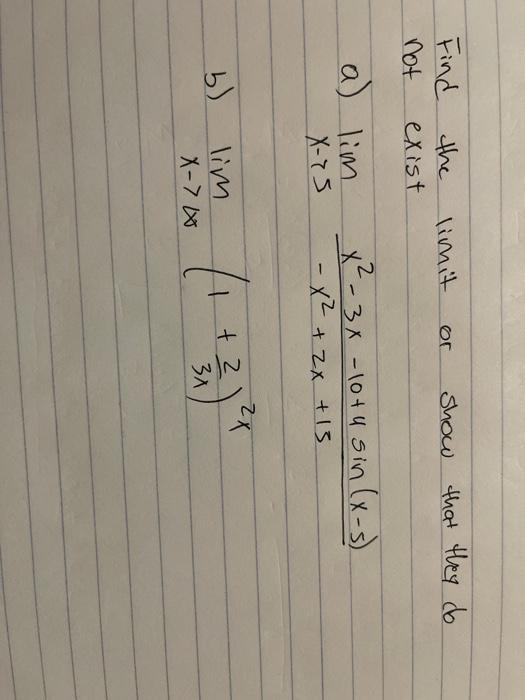 Find the limit or show that they do
not exist
a) lim x² - 3x - 10 + 4 sin(x-5)
x->5 - x² + 2x + 15
b) lim (1 + 2/3x)^2x
x->∞